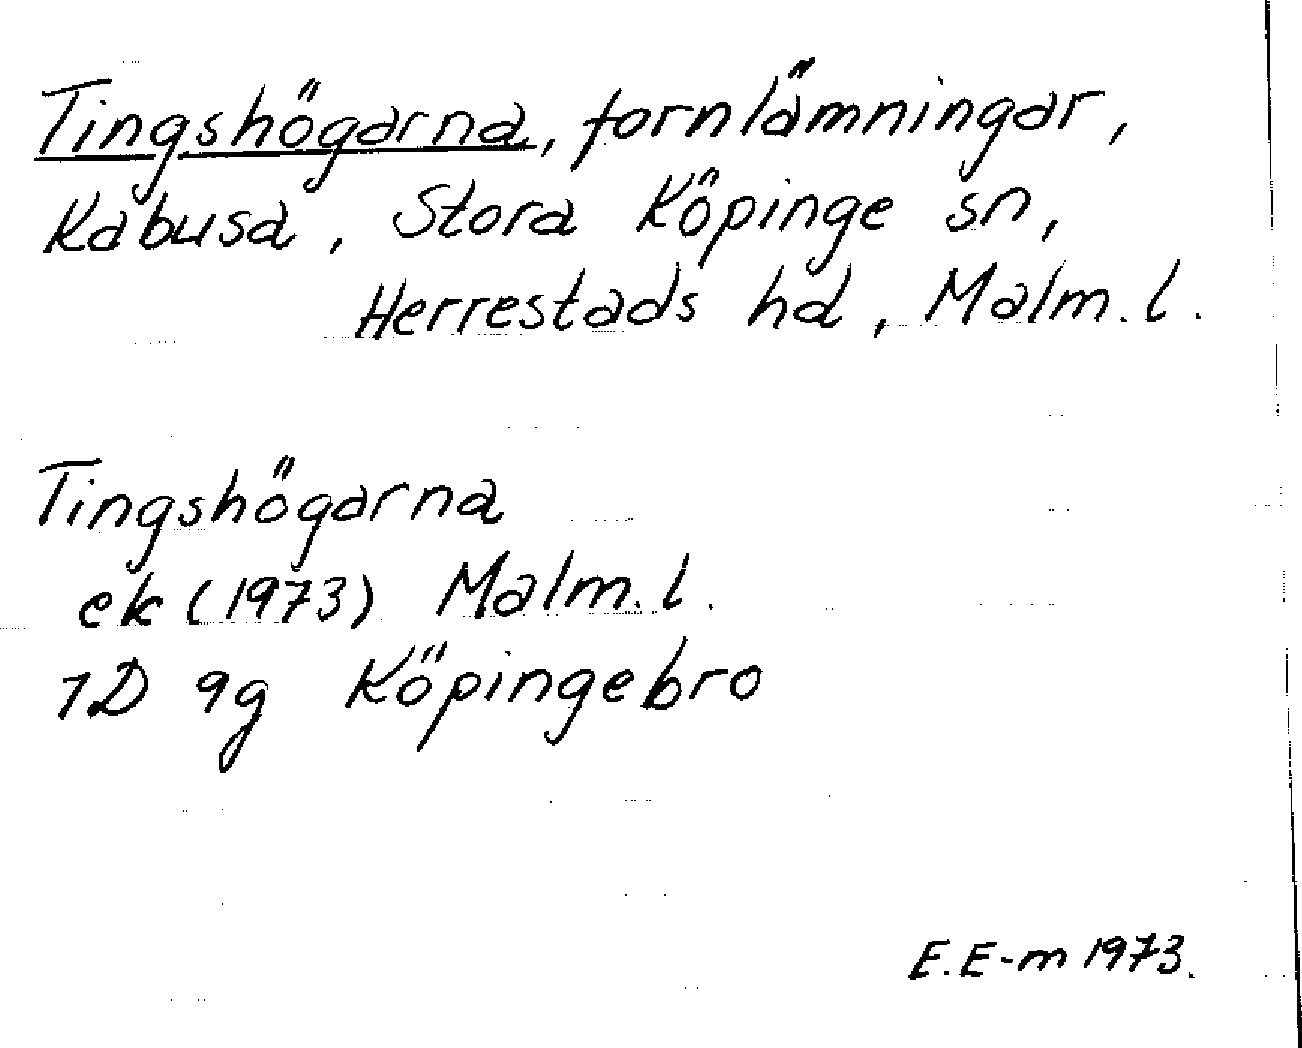 Tingshögarna, fornlämningar,
Kabusa, Stora Köpinge sn,
Herrestads hd, Malm. l.
Tingshögarna
ek (1973) Malm. l.
1D 9g Köpingebro
E. E-m 1973.